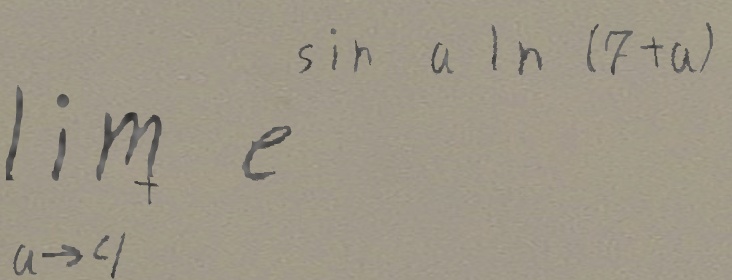 lim_{a→4^+} e^{sin a ln (7+a)}